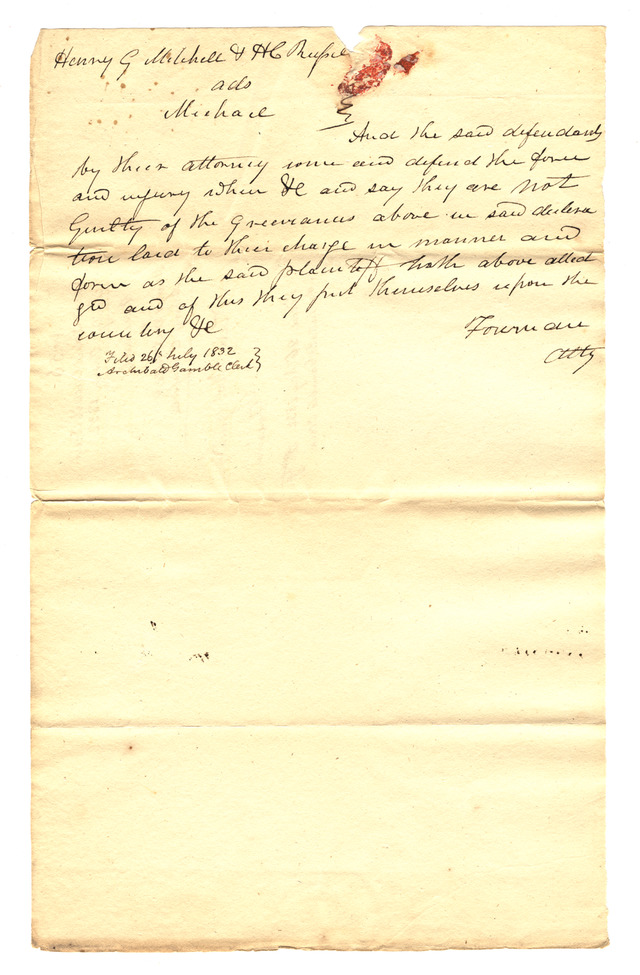 Henry G Mitchell & HC Russel
ads
Michael
And the said defendants
by their attorney come and defend the force
and injury when &c and say they are not
Guilty of the Greevances above in said declera
tion laid to their charge in manner and
form as the said plaintiff hath above alled
ged and of this they put themselves upon the
country &c
Fournan
Atty
Filed 26th July 1832
Archibald Gamble Clerk